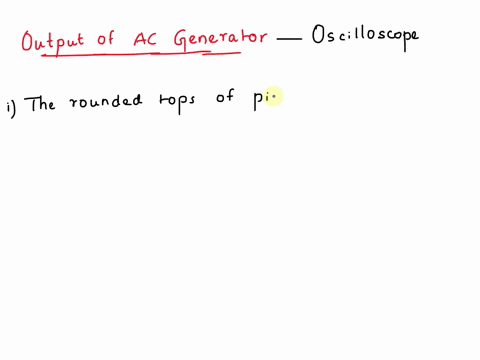 Output of AC Generator — Oscilloscope
i) The rounded tops of pi